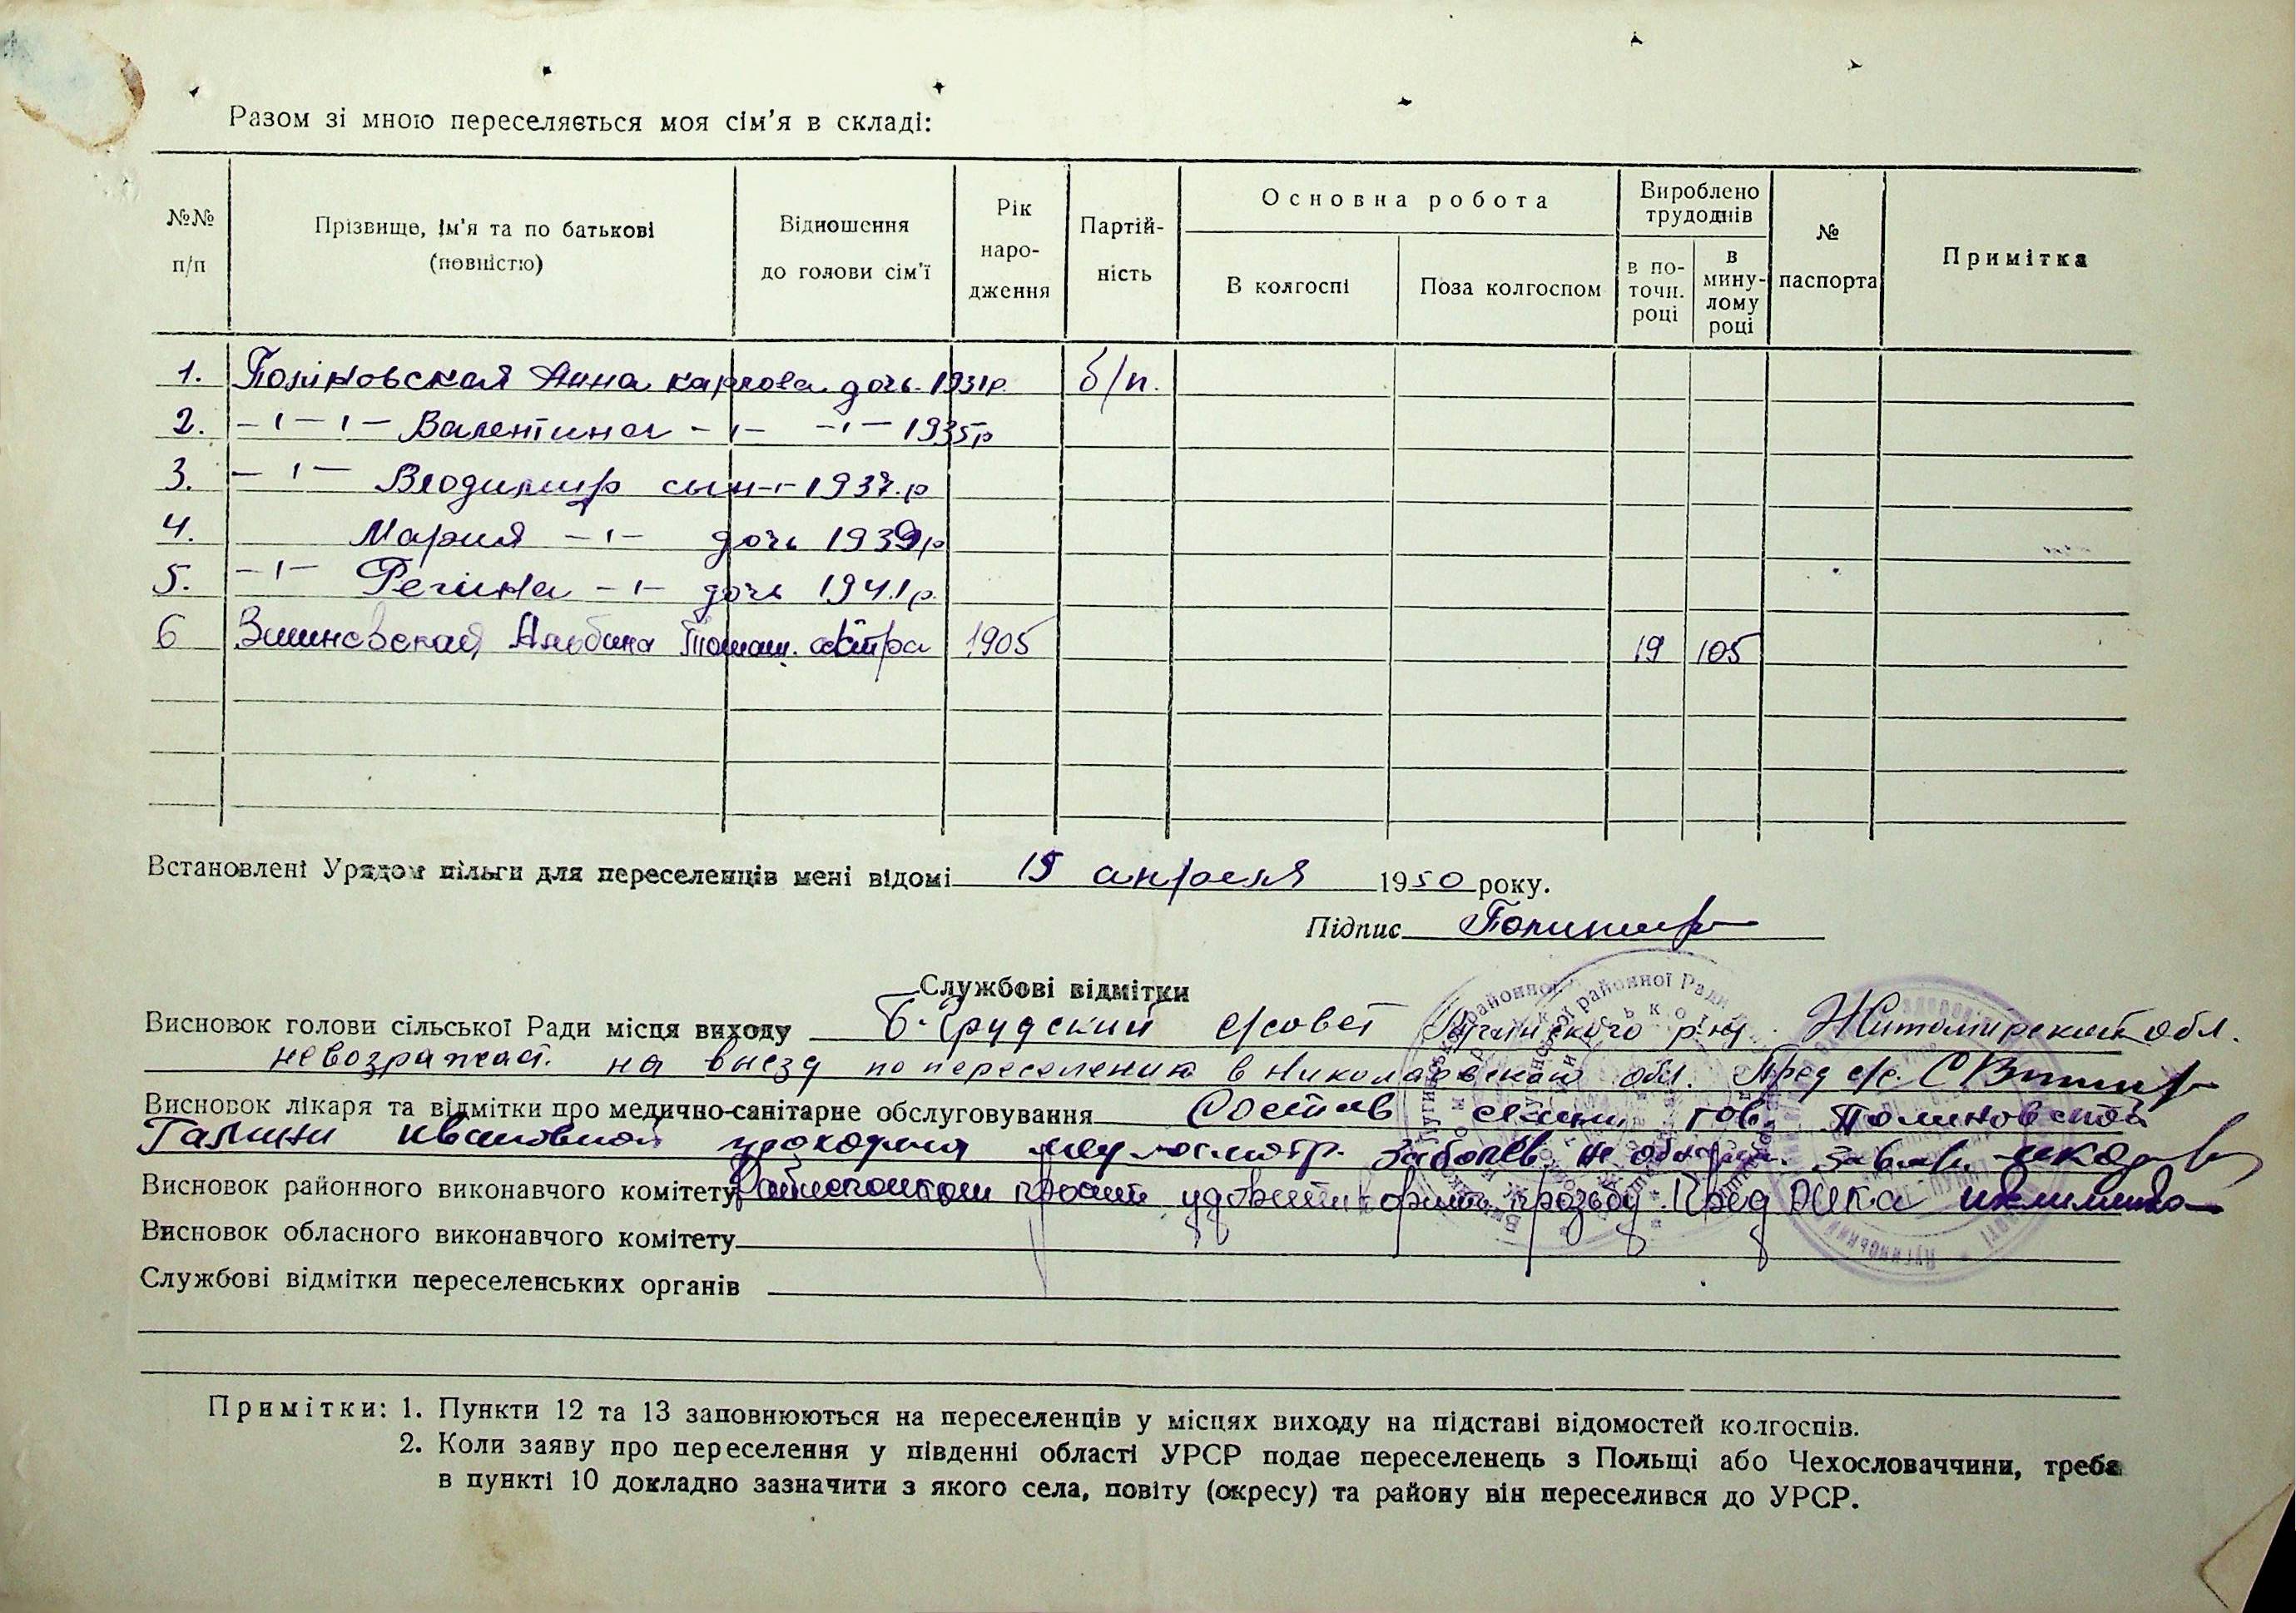 Разом зі мною переселяється моя сім'я в складі:
№№ п/п
Прізвище, ім'я та по батькові (повністю)
Відношення до голови сім'ї
Рік наро-дження
Партій-ність
Основна робота
В колгоспі
Поза колгоспом
Вироблено трудоднів
в по-точн. році
в мину-лому році
№ паспорта
Примітка
1. Поліновская Анна карлова дочь 1931р. б/п.
2. -ı-ı- Валентина -ı- -ı- 1935р
3. -ı- Влодимир сын -ı- 1937.р
4. Мария -ı- дочь 1939р
5. -ı- Регина -ı- дочь 1941р.
6 Альбина Томаш. сестра 1905 19 105
Встановлені Урядом пільги для переселенців мені відомі 15 апреля 1950 року.
Підпис
Службові відмітки
Висновок голови сільської Ради місця виходу с/совет Лугинского р-ну. Житомирской обл.
невозражает. на выезд по переселению в Николаевскай обл. Пред с/с.
Висновок лікаря та відмітки про медично-санітарне обслуговування Состав семьи гов. Полиновской
Галини Ивановной проходила медосмотр. заболев. не обнаруж.
Висновок районного виконавчого комітету Райисполком просит удовлетворить прозьбу. Пред РИКа
Висновок обласного виконавчого комітету
Службові відмітки переселенських органів
Примітки: 1. Пункти 12 та 13 заповнюються на переселенців у місцях виходу на підставі відомостей колгоспів.
2. Коли заяву про переселення у південні області УРСР подає переселенець з Польщі або Чехословаччини, треба
в пункті 10 докладно зазначити з якого села, повіту (окресу) та району він переселився до УРСР.